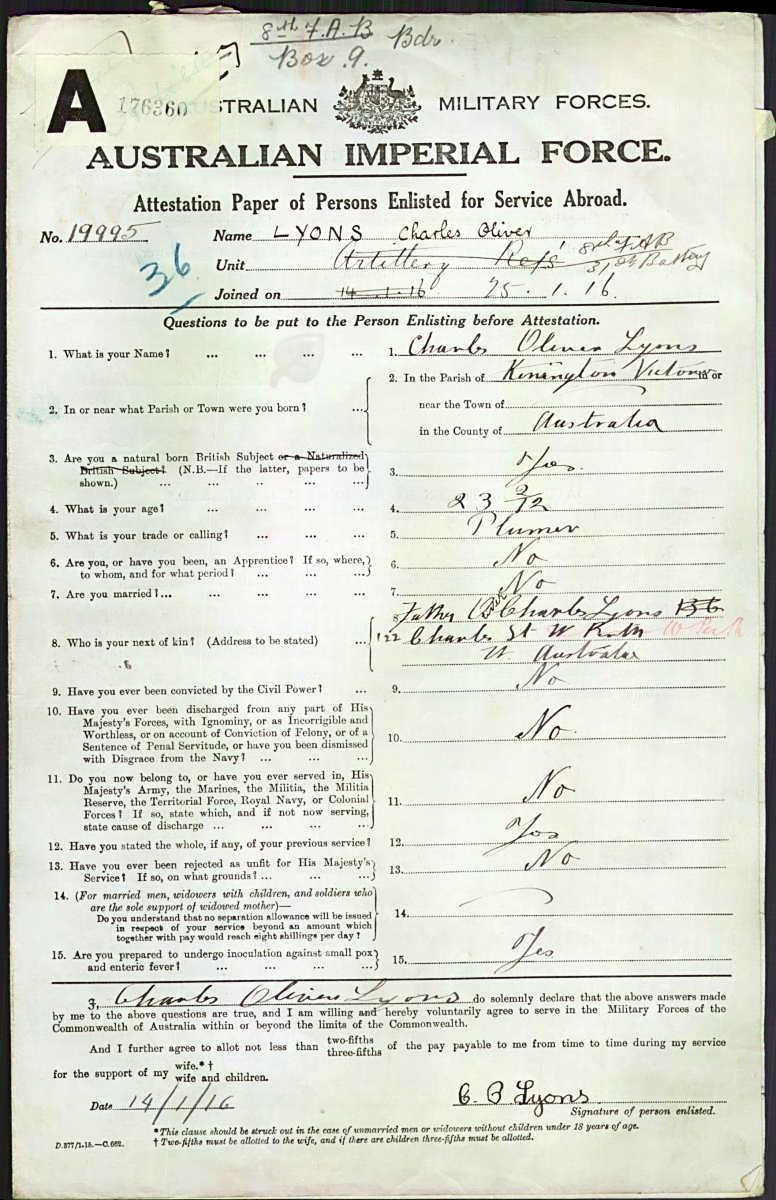 8th F.A.B Bdr.
Box 9.
A 176360
AUSTRALIAN MILITARY FORCES.
AUSTRALIAN IMPERIAL FORCE.
Attestation Paper of Persons Enlisted for Service Abroad.
No. 19995 Name LYONS Charles Oliver
36 Unit Artillery 8th FAB
31st Battery
Joined on 14.1.16 25.1.16
Questions to be put to the Person Enlisting before Attestation.
1. What is your Name? ... ... ... ... 1. Charles Oliver Lyons
2. In the Parish of Kenington Victoria or
2. In or near what Parish or Town were you born? ... near the Town of
in the County of Australia
3. Are you a natural born British Subject or a Naturalized
British Subject? (N.B.—If the latter, papers to be
shown.) ... ... ... ... ... 3. Yes.
4. What is your age? ... ... ... ... 4. 23 2/12
5. What is your trade or calling? ... ... ... 5. Plumer
6. Are you, or have you been, an Apprentice? If so, where,
to whom, and for what period? ... ... ... 6. No
7. Are you married?... ... ... ... ... 7. No
Father Charles Lyons
8. Who is your next of kin? (Address to be stated) ... 122 Charles St W Perth W Perth
W. Australia
9. Have you ever been convicted by the Civil Power? ... 9. No
10. Have you ever been discharged from any part of His
Majesty's Forces, with Ignominy, or as Incorrigible and
Worthless, or on account of Conviction of Felony, or of a
Sentence of Penal Servitude, or have you been dismissed
with Disgrace from the Navy? ... ... ... 10. No.
11. Do you now belong to, or have you ever served in, His
Majesty's Army, the Marines, the Militia, the Militia
Reserve, the Territorial Force, Royal Navy, or Colonial
Forces? If so, state which, and if not now serving,
state cause of discharge ... ... ... ... 11. No
12. Have you stated the whole, if any, of your previous service? 12. Yes
13. Have you ever been rejected as unfit for His Majesty's
Service? If so, on what grounds? ... ... ... 13. No
14. (For married men, widowers with children, and soldiers who
are the sole support of widowed mother)—
Do you understand that no separation allowance will be issued
in respect of your service beyond an amount which
together with pay would reach eight shillings per day? 14.
15. Are you prepared to undergo inoculation against small pox
and enteric fever? ... ... ... ... 15. Yes
I, Charles Oliver Lyons do solemnly declare that the above answers made
by me to the above questions are true, and I am willing and hereby voluntarily agree to serve in the Military Forces of the
Commonwealth of Australia within or beyond the limits of the Commonwealth.
And I further agree to allot not less than two-fifths three-fifths of the pay payable to me from time to time during my service
for the support of my wife.*† wife and children.
Date 14/1/16 C. O Lyons
Signature of person enlisted.
*This clause should be struck out in the case of unmarried men or widowers without children under 18 years of age.
D.877/1.15.—C.662. † Two-fifths must be allotted to the wife, and if there are children three-fifths must be allotted.